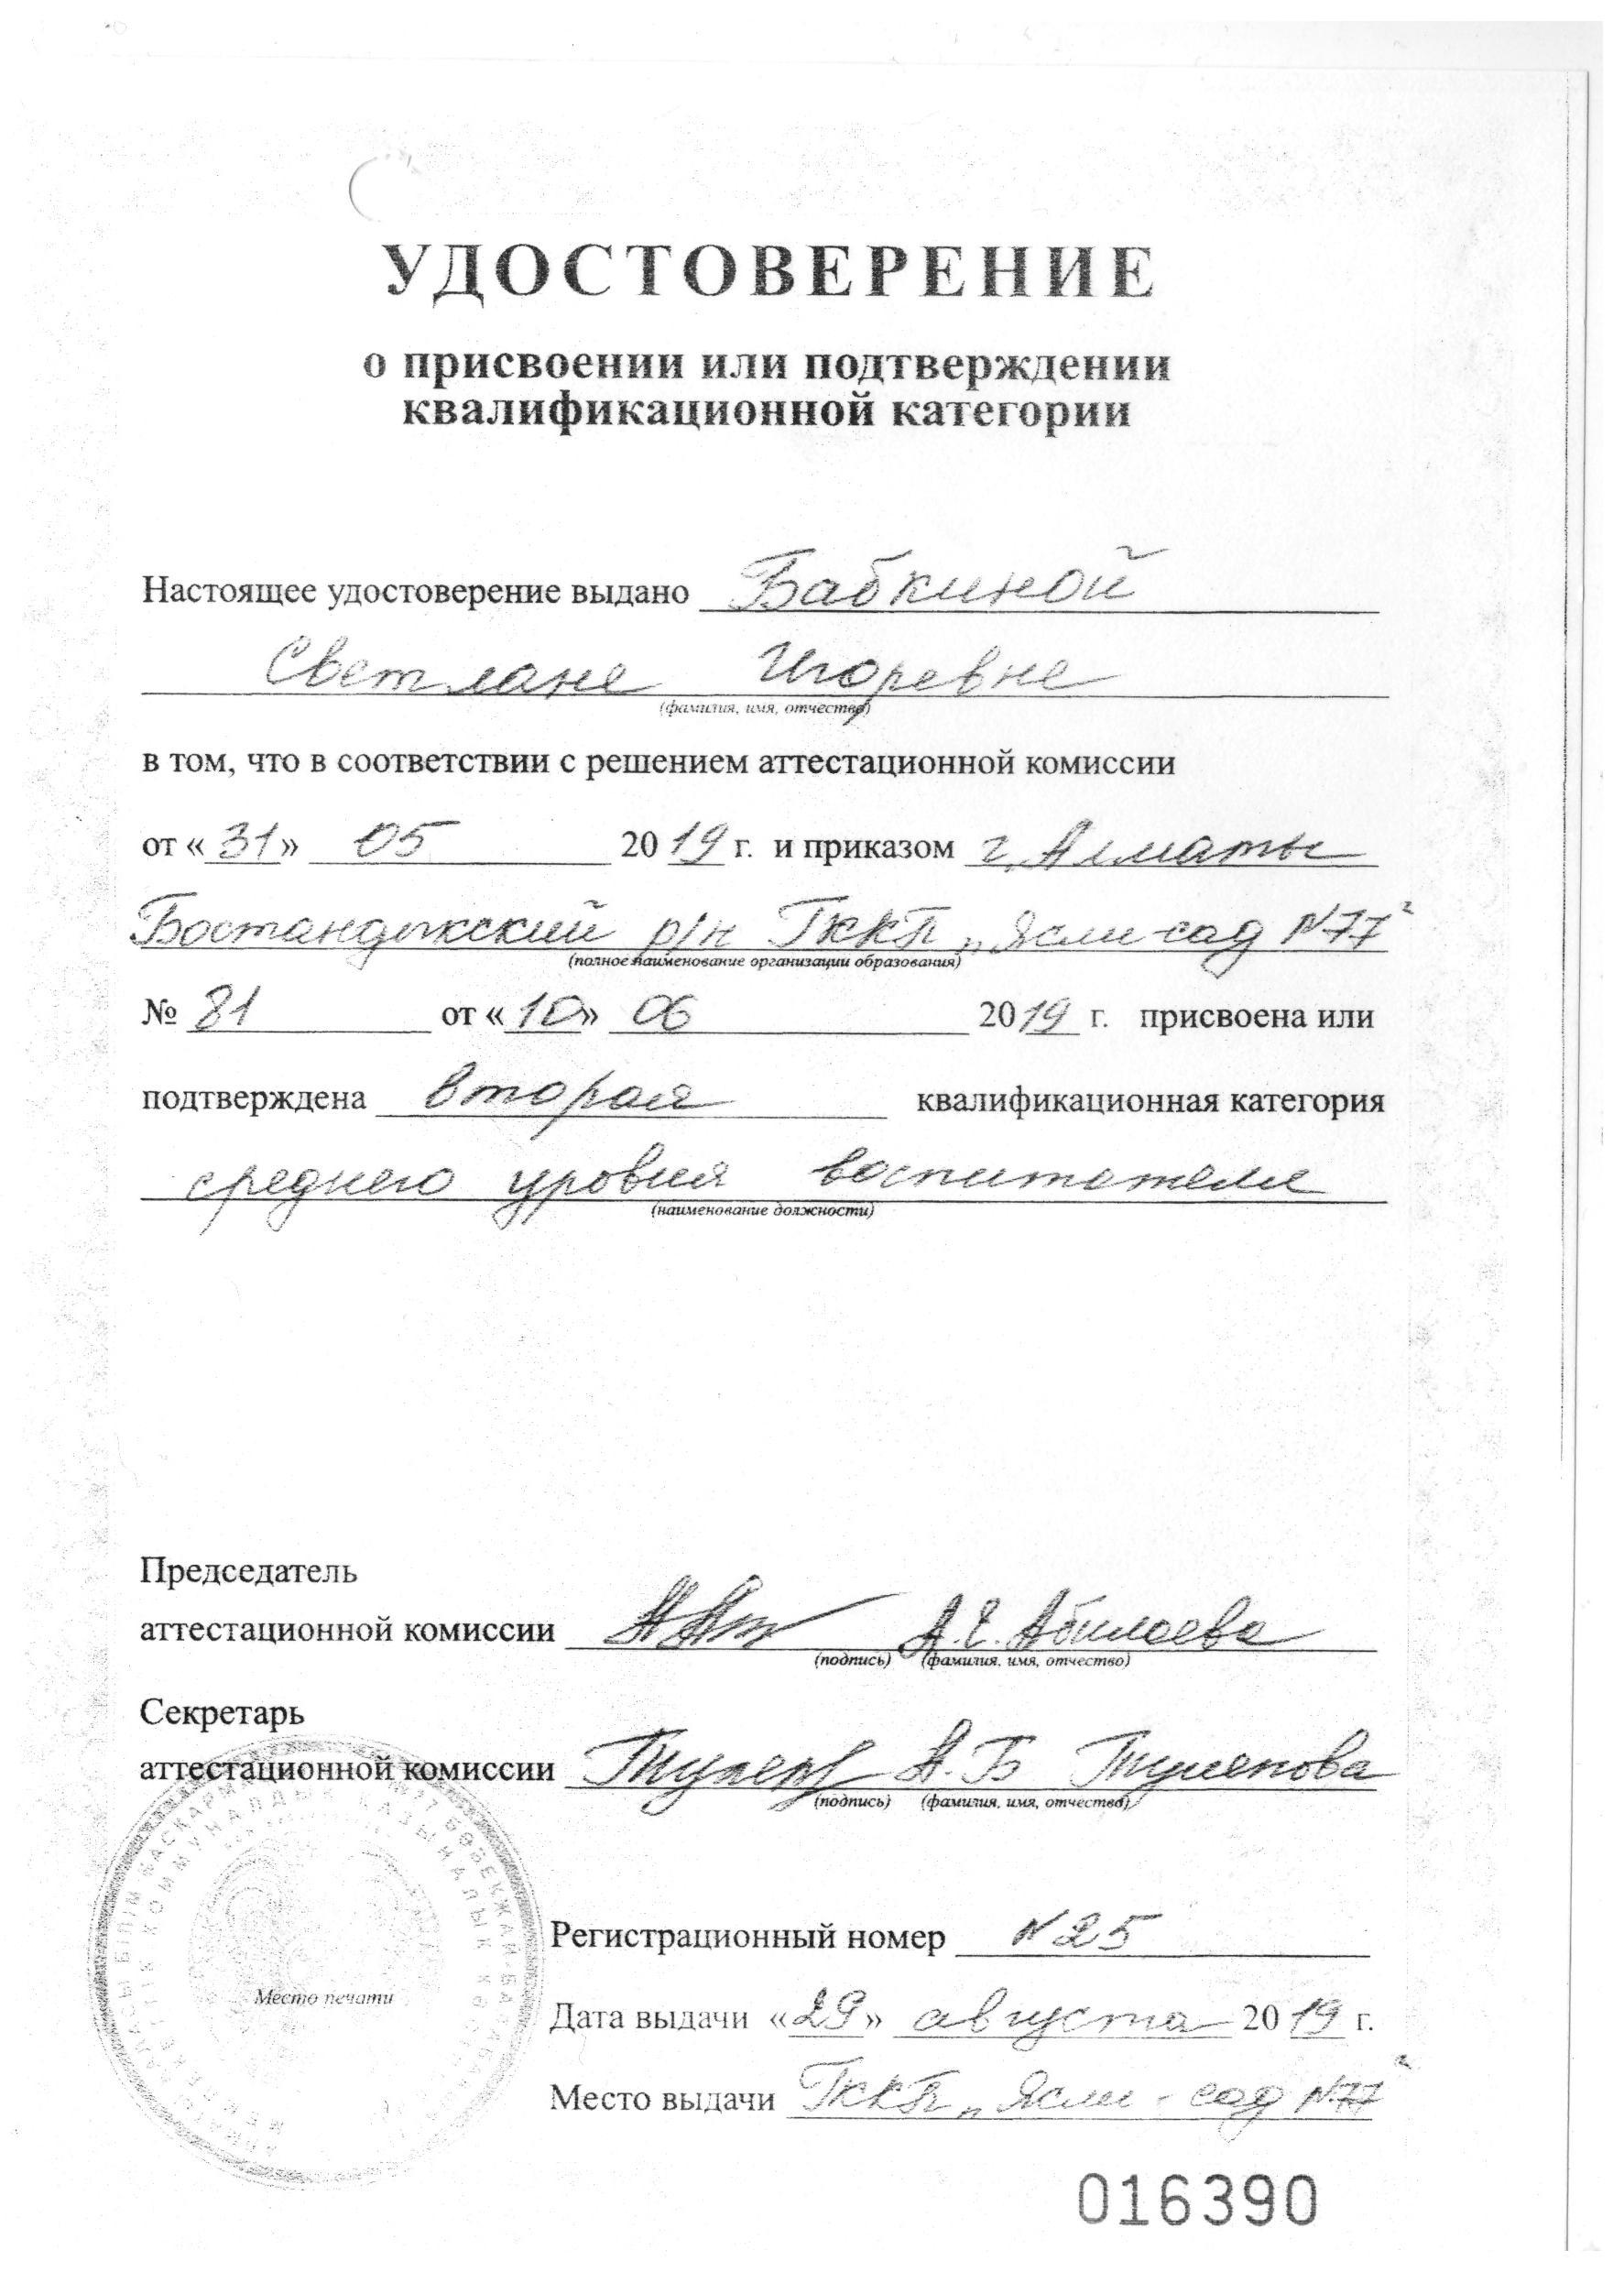 УДОСТОВЕРЕНИЕ
о присвоении или подтверждении
квалификационной категории
Настоящее удостоверение выдано Бабкиной
Светлане Игоревне
(фамилия, имя, отчество)
в том, что в соответствии с решением аттестационной комиссии
от «31» 05 2019 г. и приказом г. Алматы
Бостандыкский р/н ГККП „Ясли-сад №77"
(полное наименование организации образования)
№ 81 от «10» 06 2019 г. присвоена или
подтверждена вторая квалификационная категория
среднего уровня воспитателя
(наименование должности)
Председатель
аттестационной комиссии А.Е. Абилаева
(подпись) (фамилия, имя, отчество)
Секретарь
аттестационной комиссии А.Б
(подпись) (фамилия, имя, отчество)
Регистрационный номер №25
Место печати
Дата выдачи «29» августа 2019 г.
Место выдачи ГККП „Ясли-сад №77"
016390